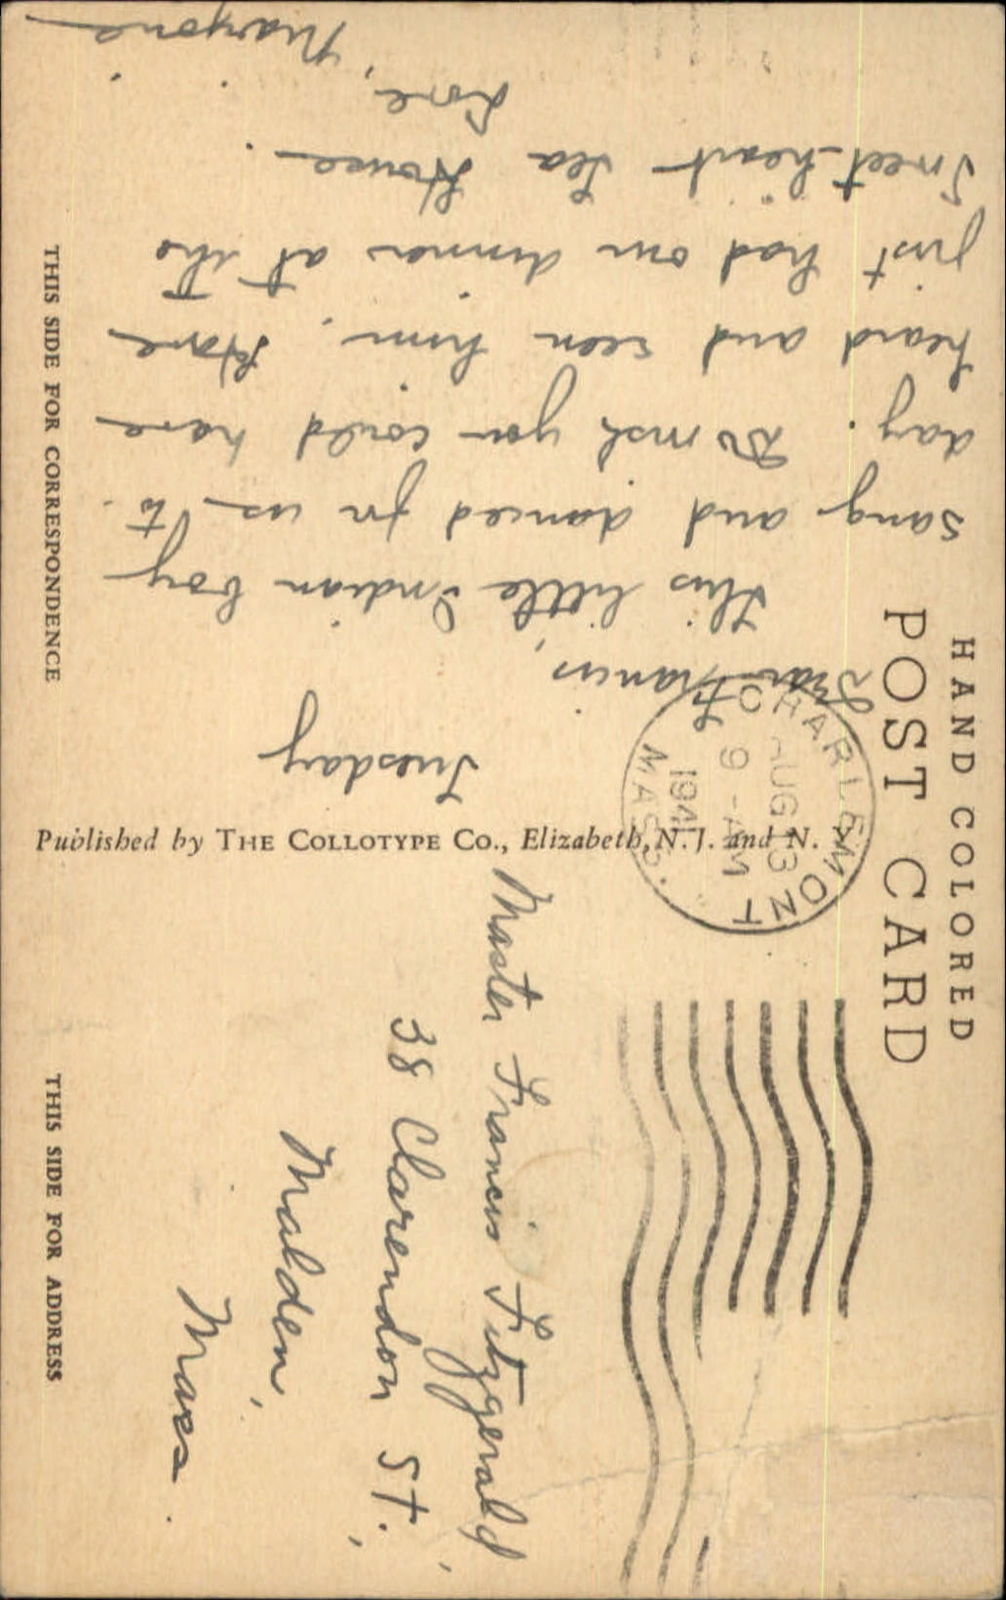 HAND COLORED
POST CARD
THIS SIDE FOR CORRESPONDENCE
THIS SIDE FOR ADDRESS
Published by THE COLLOTYPE Co., Elizabeth, N. J. and N. Y.
CHARLEMONT
AUG 13
9 - AM
194
MASS.
Tuesday
Dear Francis,
This little Indian boy
sang and danced for us to-
day. Do wish you could have
heard and seen him. Have
just had our dinner at the
Sweet-heart Tea House.
Love,
Marjorie
Master Francis Fitzgerald,
38 Clarendon St.,
Malden,
Mass.